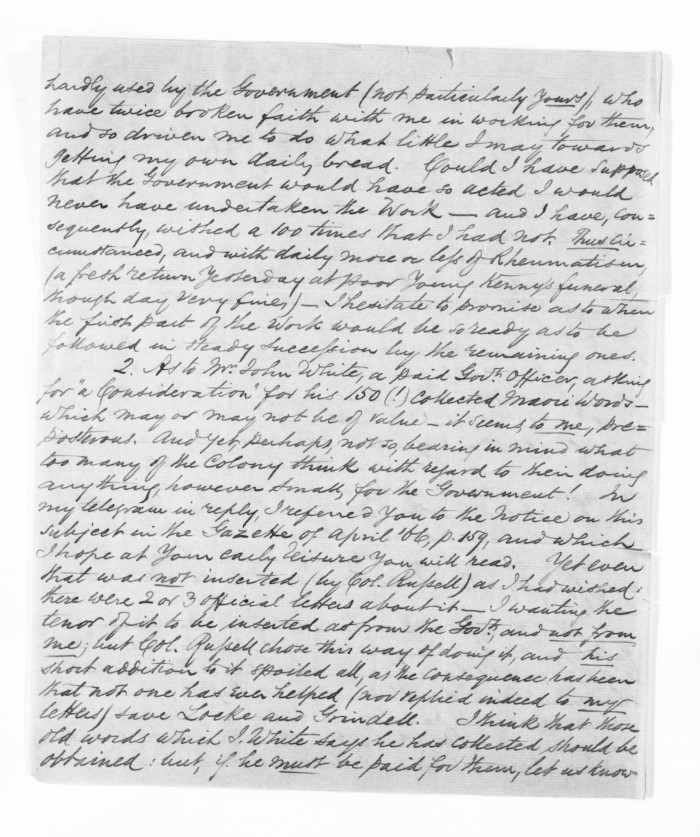 hardly used by the Government (not particularly yours), who
have twice broken faith with me in working for them,
and so driven me to do what little I may towards
getting my own daily bread. Could I have supposed
that the Government would have so acted I would
never have undertaken the Work — and I have, con=
sequently, wished a 100 times that I had not. Thus cir=
cumstanced, and with daily more or less of Rheumatism,
(a fresh return yesterday at poor Young Kenny's funeral,
though day very fine,) — I hesitate to promise as to when
the first part of the Work would be so ready as to be
followed in steady succession by the remaining ones.
2. As to Mr. John White, a paid Govt. Officer, asking
for "a Consideration" for his 150 (!) collected Maori Words —
which may or may not be of value — it seems, to me, pre=
posterous. And yet, perhaps, not so, bearing in mind what
too many of the Colony think with regard to their doing
anything, however small, for the Government! In
my telegram in reply, I referred you to the Notice on this
subject in the Gazette of April '66, p. 159, and which
I hope at your early leisure you will read. Yet even
that was not inserted (by Col. Russell) as I had wished:
there were 2 or 3 official letters about it — I wanting the
tenor of it to be inserted as from the Govt., and not from
me; but Col. Russell chose this way of doing it, and his
short addition to it spoiled all, as the consequence has been
that not one has ever helped (nor replied indeed to my
letters) save Locke and Grindell. I think that those
old words which J. White says he has collected, should be
obtained: but, if he must be paid for them, let us know